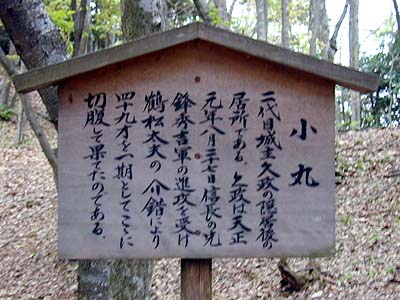 小丸
二代目城主久政の隠居後の
居所である。久政は天正
元年八月二十七日信長の先
鋒秀吉軍の進攻を受け
鶴松太夫の介錯により
四十九才を一期としてここに
切腹して果てたのである。